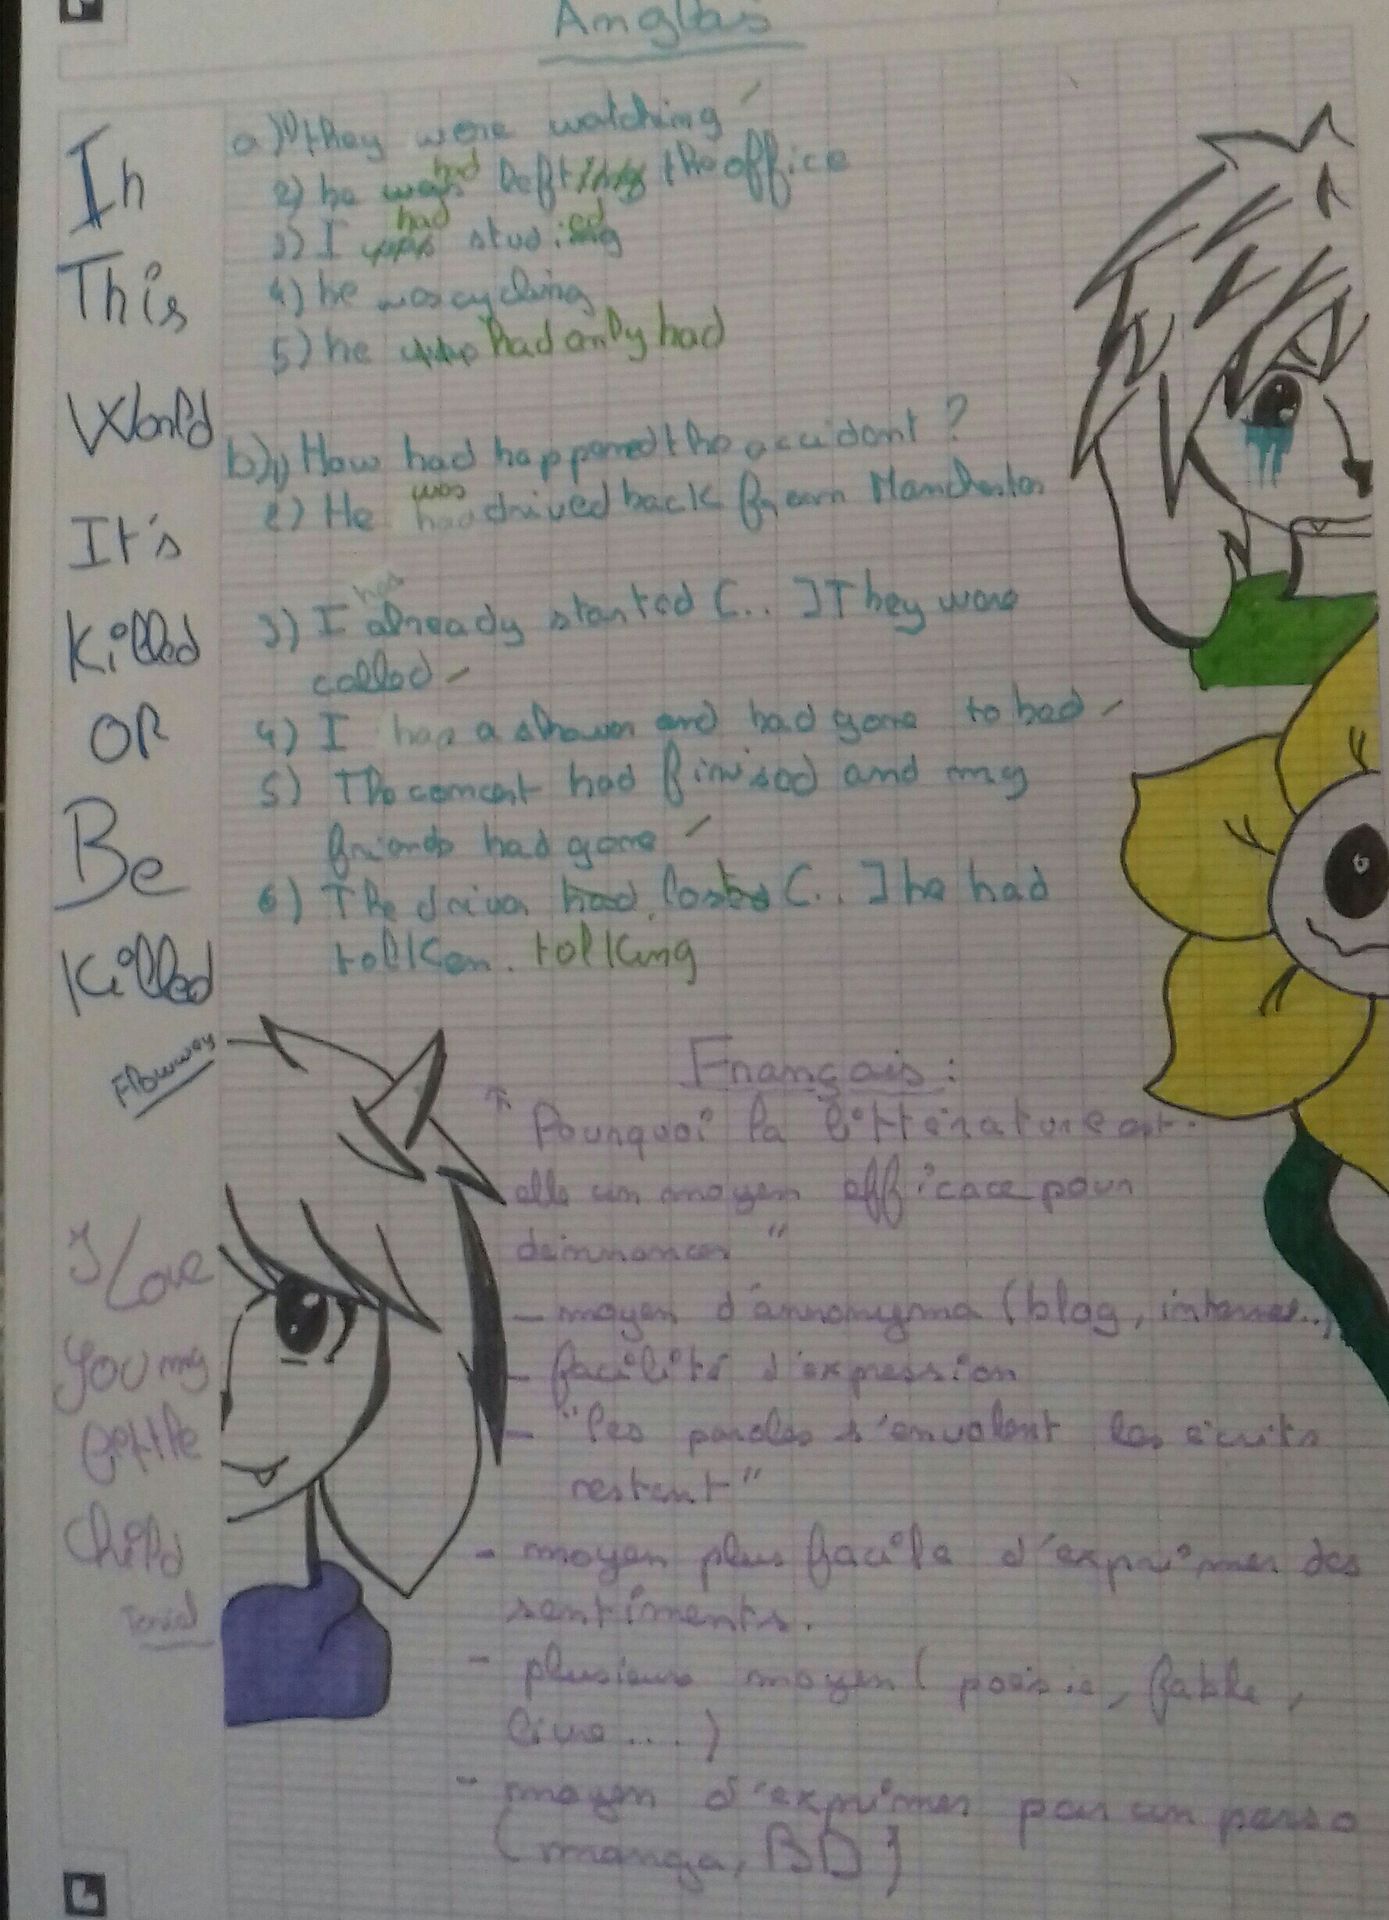 Anglais
In
This
World
It's
Killed
OR
Be
Killed
Flowwey
a) 1) they were watching
2) he had left the office
3) I had studied
4) he was cycling
5) he had only had
b) 1) How had happened the accident ?
2) He was drived back from Manchester
3) I has already started [...] They were
called
4) I had a shower and had gone to bed
5) The concert had finised and my
friends had gone
6) The driver had lost [...] he had
tolken. tolking
Français :
"Pourquoi la littérature est-
elle un moyen efficace pour
"
- moyen d'annonyma (blog, internet..)
- facilité d'expression
- "les paroles s'envolent les écrits
restent"
- moyen plus facile d'exprimer des
sentiments.
- plusieurs moyen ( poésie, fable,
livre....)
- moyen d'exprimer par un perso
(manga, BD)
I Love
you my
little
child
Toriel